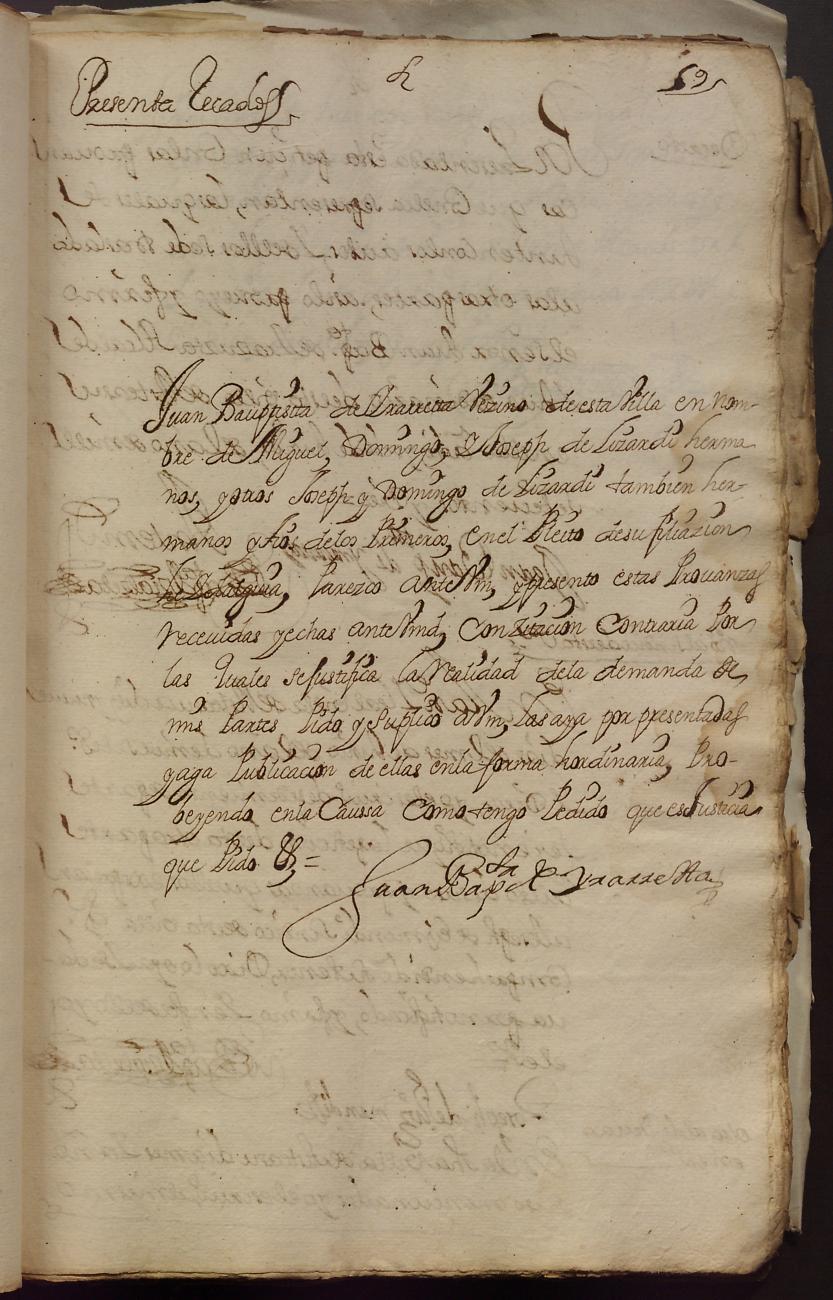 Presenta Recados
59
Juan Bauptista de Yrarreta Vezino de esta Villa en nom-
bre de Miguel, Domingo, Y Joseph de Lizardi herma
nos, y otros Joseph y Domingo de Lizardi tambien her-
manos y hijos delos Primeros, en el Pleito de su filiazion
Parezco ante Vm, y presento estas Provanzas
recevidas y echas ante Vmd, Con Zitacion Contraria Por
las quales se justifica la Realidad dela demanda de
mis Partes Pido y Suplico a Vm, las aya por presentadas
y aga Publicacion de ellas en la forma hordinaria, Pro-
beyendo en la Caussa Como tengo Pedido que es Justicia
que Pido &, =
Juan Bapta de Yrarretta